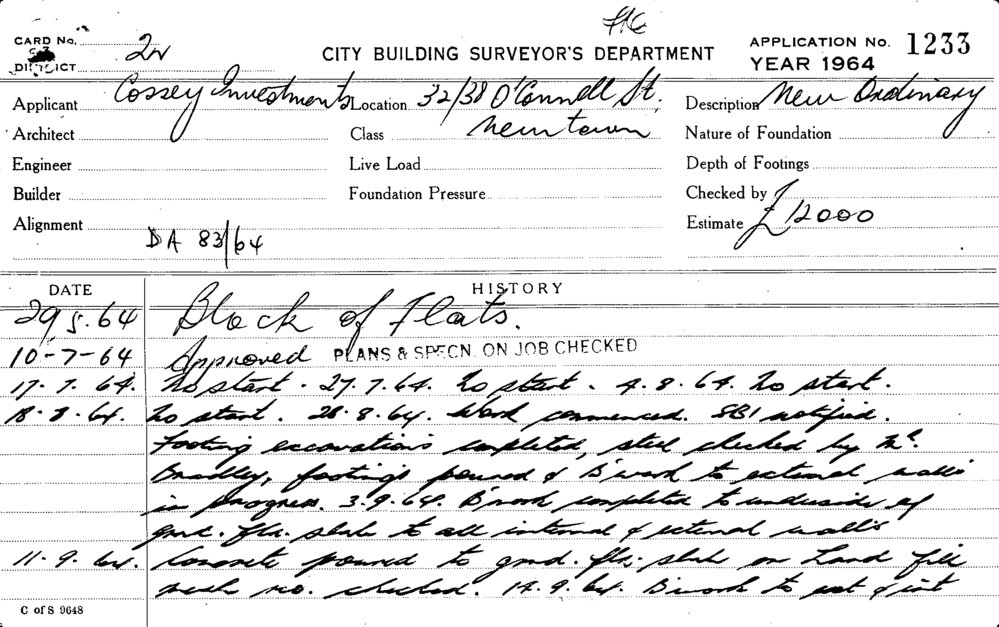 FNC
CARD No. 2N CITY BUILDING SURVEYOR'S DEPARTMENT APPLICATION No. 1233
DISTRICT YEAR 1964
Applicant Cossey Investments Location 32/38 O'Connell St. Description New Ordinary
Architect Class Newtown Nature of Foundation
Engineer Live Load Depth of Footings
Builder Foundation Pressure Checked by
Alignment DA 83/64 Estimate £12000
DATE HISTORY
29.5.64 Block of Flats.
10-7-64 Approved PLANS & SPECN. ON JOB CHECKED
17.7.64. No start. 27.7.64. No start. 4.8.64. No start.
18.8.64. No start. 28.8.64. Work commenced. SBI notified.
Footing excavations completed, steel checked by Mr.
Bradley, footings poured & B'work to external walls
in progress. 3.9.64. B'work completed to underside of
grnd. flr. slab to all internal & external walls
11.9.64. Concrete poured to grnd. flr. slab on hard fill
mesh reo. checked. 14.9.64. B'work to ext & int
C of S 9648